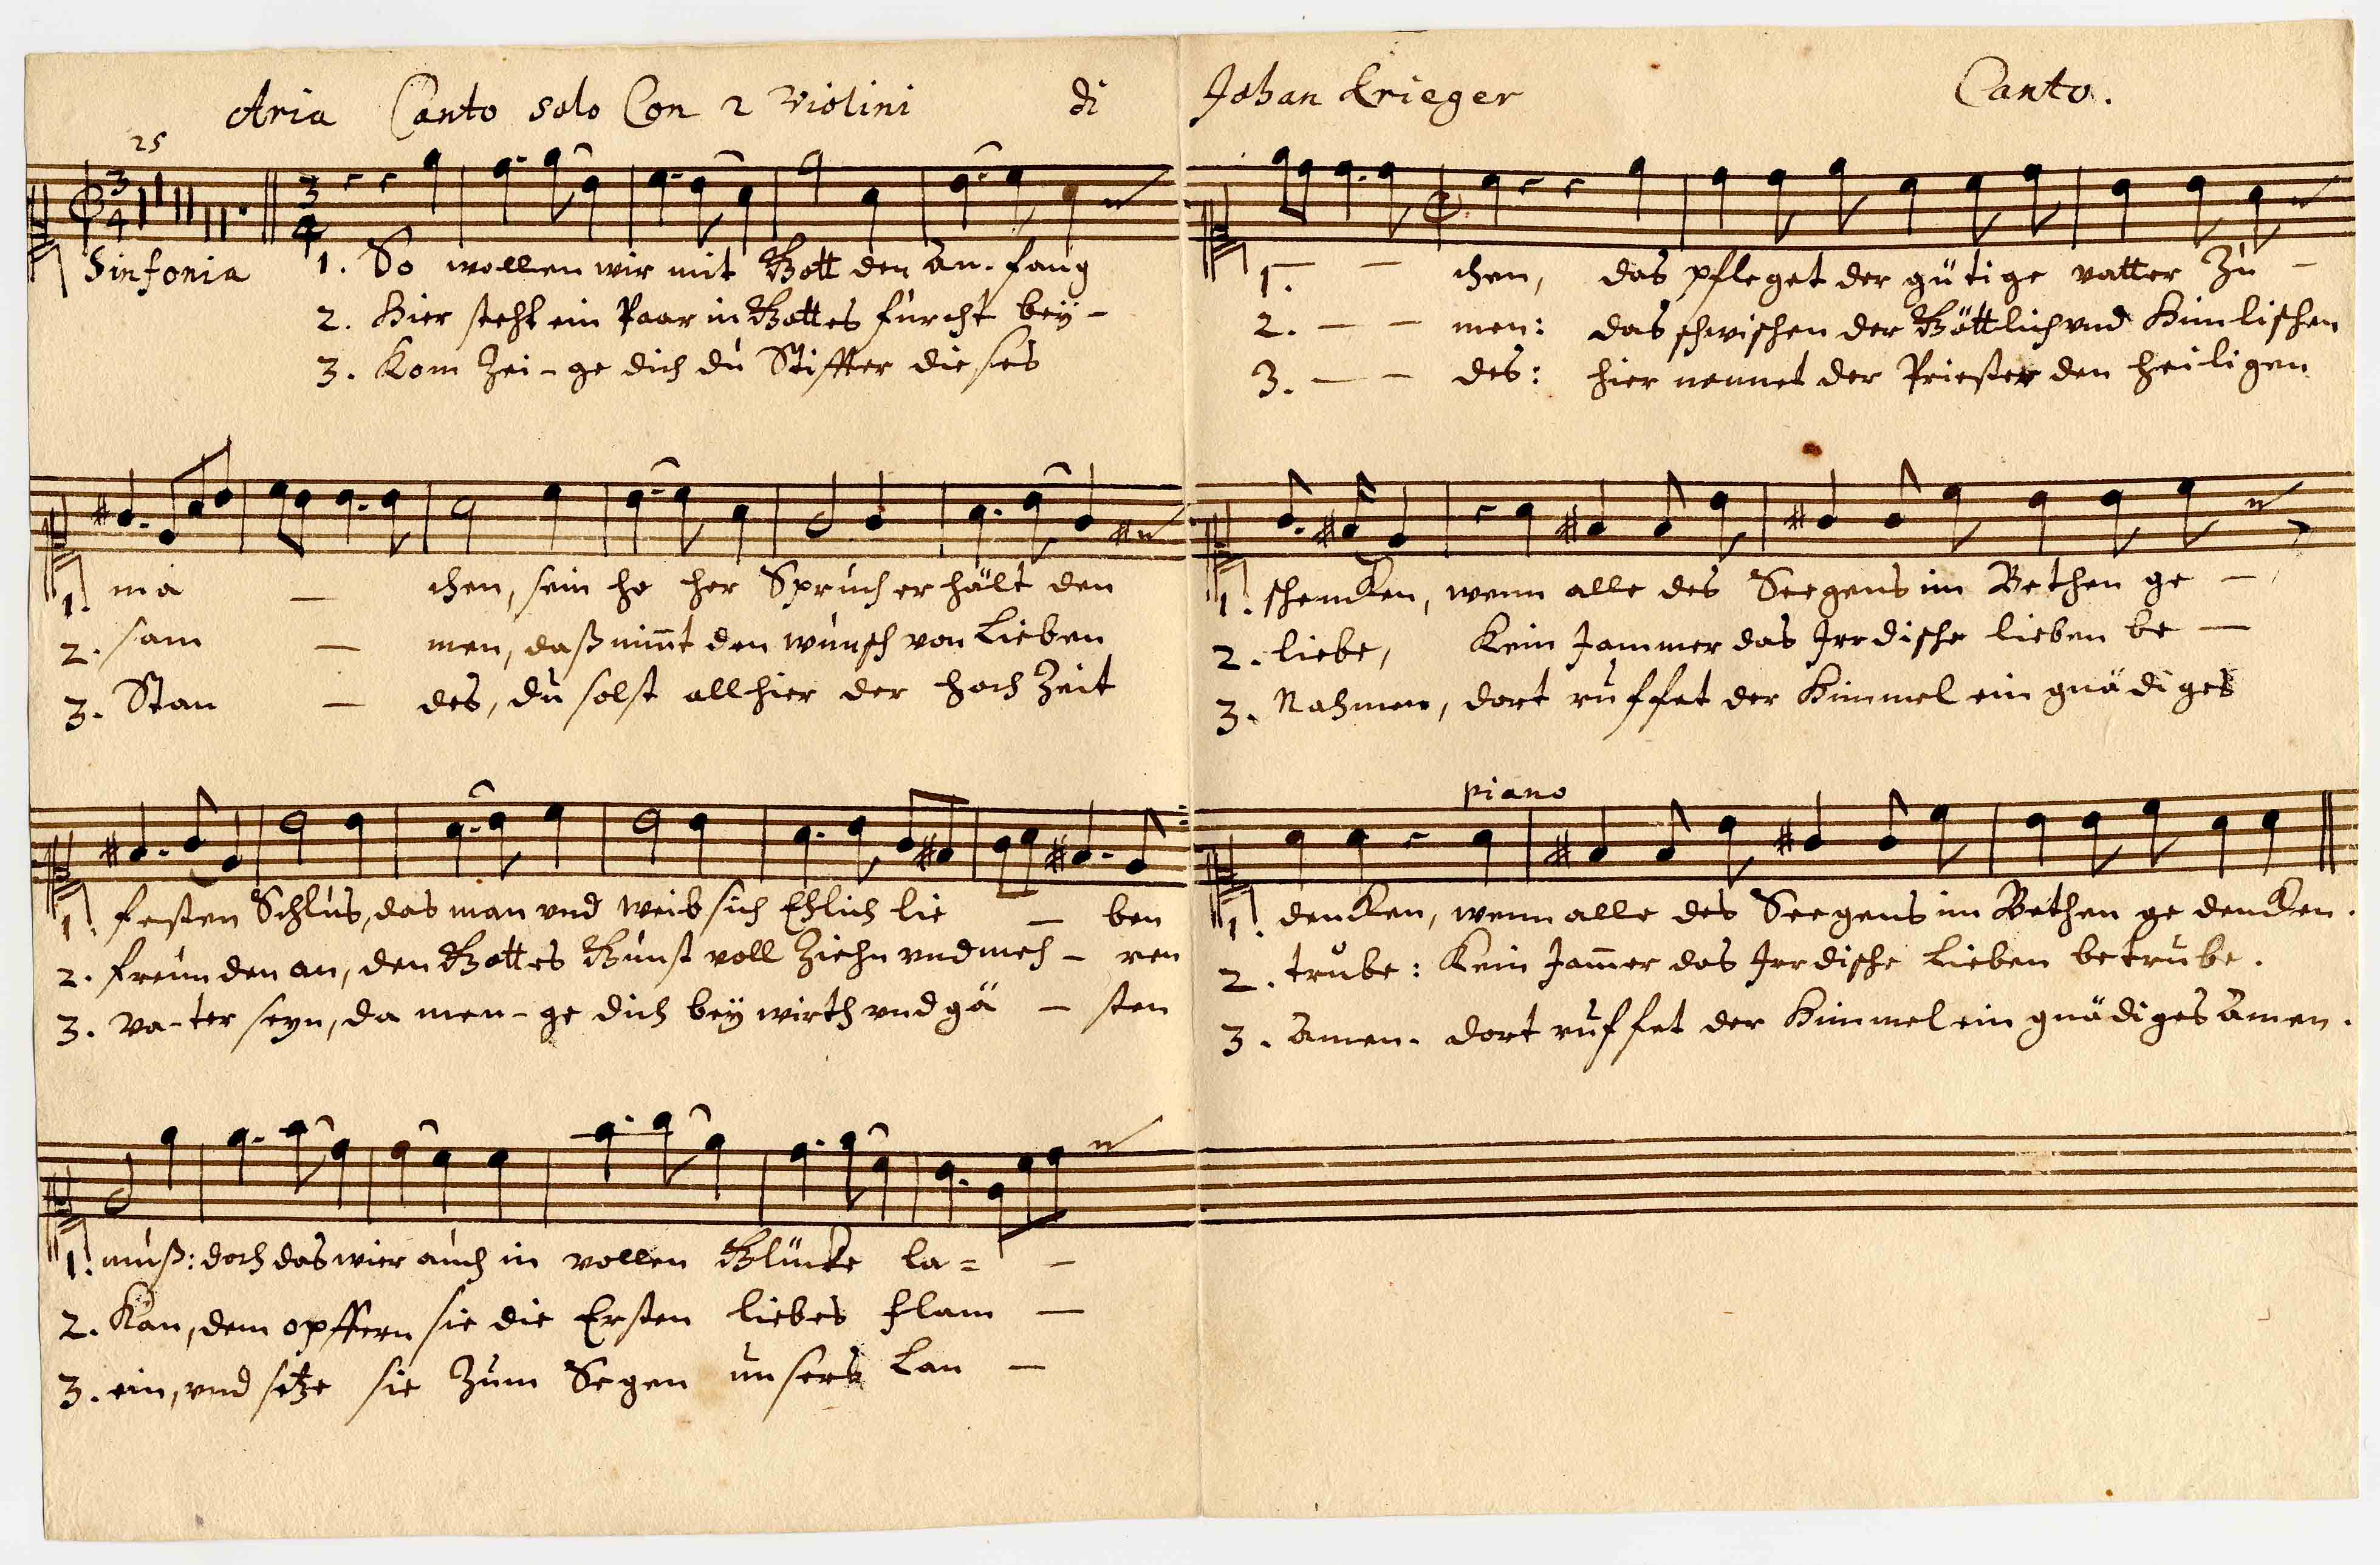 Aria Canto solo Con 2 Violini di Johan Krieger Canto.
25
3 4 3
Sinfonia 1. So wollen wir mit Gott den An-fang
2. Hier steht ein Paar in Gottes furcht bey -
3. Kom Zei-ge dich du Stiffter dieses
1. ma - chen, sein ho her Spruch er hält den
2. sam - men, daß nim̃t den wunsch von Lieben
3. Stan - des, du solst allhier der hoch Zeit
1. festen Schlus, das man vnd weib sich Ehlich lie - ben
2. freunden an, den Gottes Gunst voll Ziehn vnd meh - ren
3. Va-ter seyn, da men-ge dich bey wirth vnd gä - sten
1. muß: doch das wier auch in vollen Glücke la= -
2. Kan, dem opffern sie die Ersten liebes flam -
3. ein, vnd setze sie Zum Segen unsers Lan -
1. - - chen, das pfleget der gütige vatter Zu -
2. - - men: das schwischen der Göttlich vnd Himlischen
3. - - des: hier nennet der Priester den heiligen
1. schencken, wenn alle des Seegens im Bethen ge -
2. liebe, Kein Jammer das Irrdische lieben be -
3. Nahmen, dort ruffet der Himmel ein gnädiges
piano
1. dencken, wenn alle des Seegens im Bethen ge dencken.
2. trube: Kein Jam̃er das Irrdische Lieben betrube.
3. Amen. dort ruffet der Himmel ein gnädiges Amen.